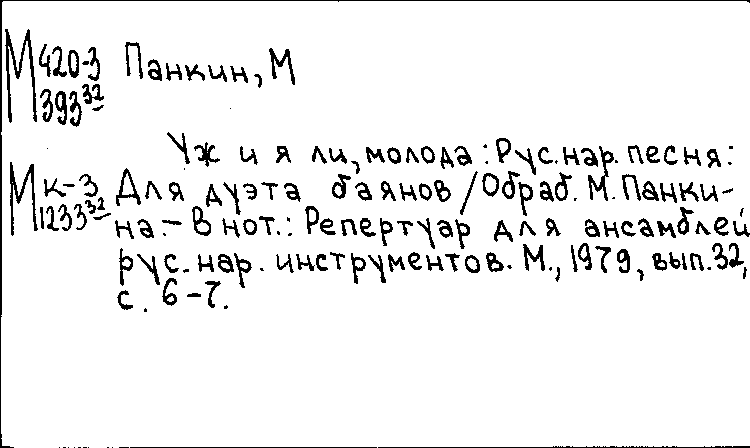 М 420-3 Панкин, М
393 32
Уж и я ли, молода : Рус. нар. песня :
М К-3 Для дуэта баянов / Обраб. М. Панки-
1233 32 на. - В нот. : Репертуар для ансамблей
рус. нар. инструментов. М., 1979, вып. 32,
с. 6-7.